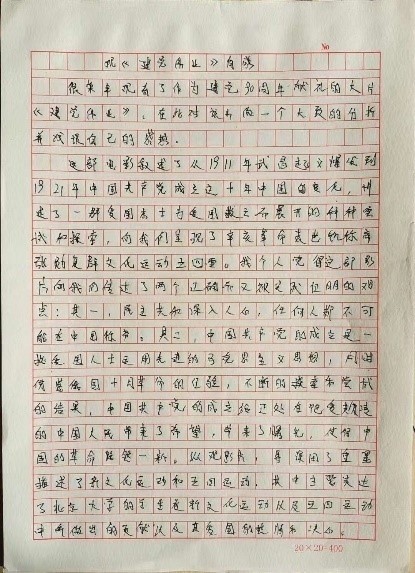 No
观《建党伟业》有感
很荣幸观看了作为建党90周年献礼的大片
《建党伟业》,在
并谈谈自己的感想。
这部电影叙述了从1911年武昌起义爆发到
1921年中国共产党成立这十年中国
述了一群爱国志士为走国救亡而展开的种种尝
试和探索,向我们呈现了辛亥革命袁世凯称帝
张勋复辟文化运动五四等。我个人觉得这部影
片向我们传达了两个正确而又被史实证明的观
点:其一,民主共和深入人心,任何人都不可
能在中国称帝。其二,中国共产党的成立是一
批爱国人士运用先进的马克思主义思想,同时
借鉴俄国十月革命的经验,不断的探索和尝试
的结果,中国共产党的成立给正处在饱受
的中国人民带来了希望,带来了曙光,使得中
国的革命焕然一新。纵观影片,导演用了重墨
描述了新文化运动和五四运动,其中主要表达
了北京大学的学生在新文化运动以及五四运动
中所做出的贡献以及其爱国的热情和决心。
20×20=400